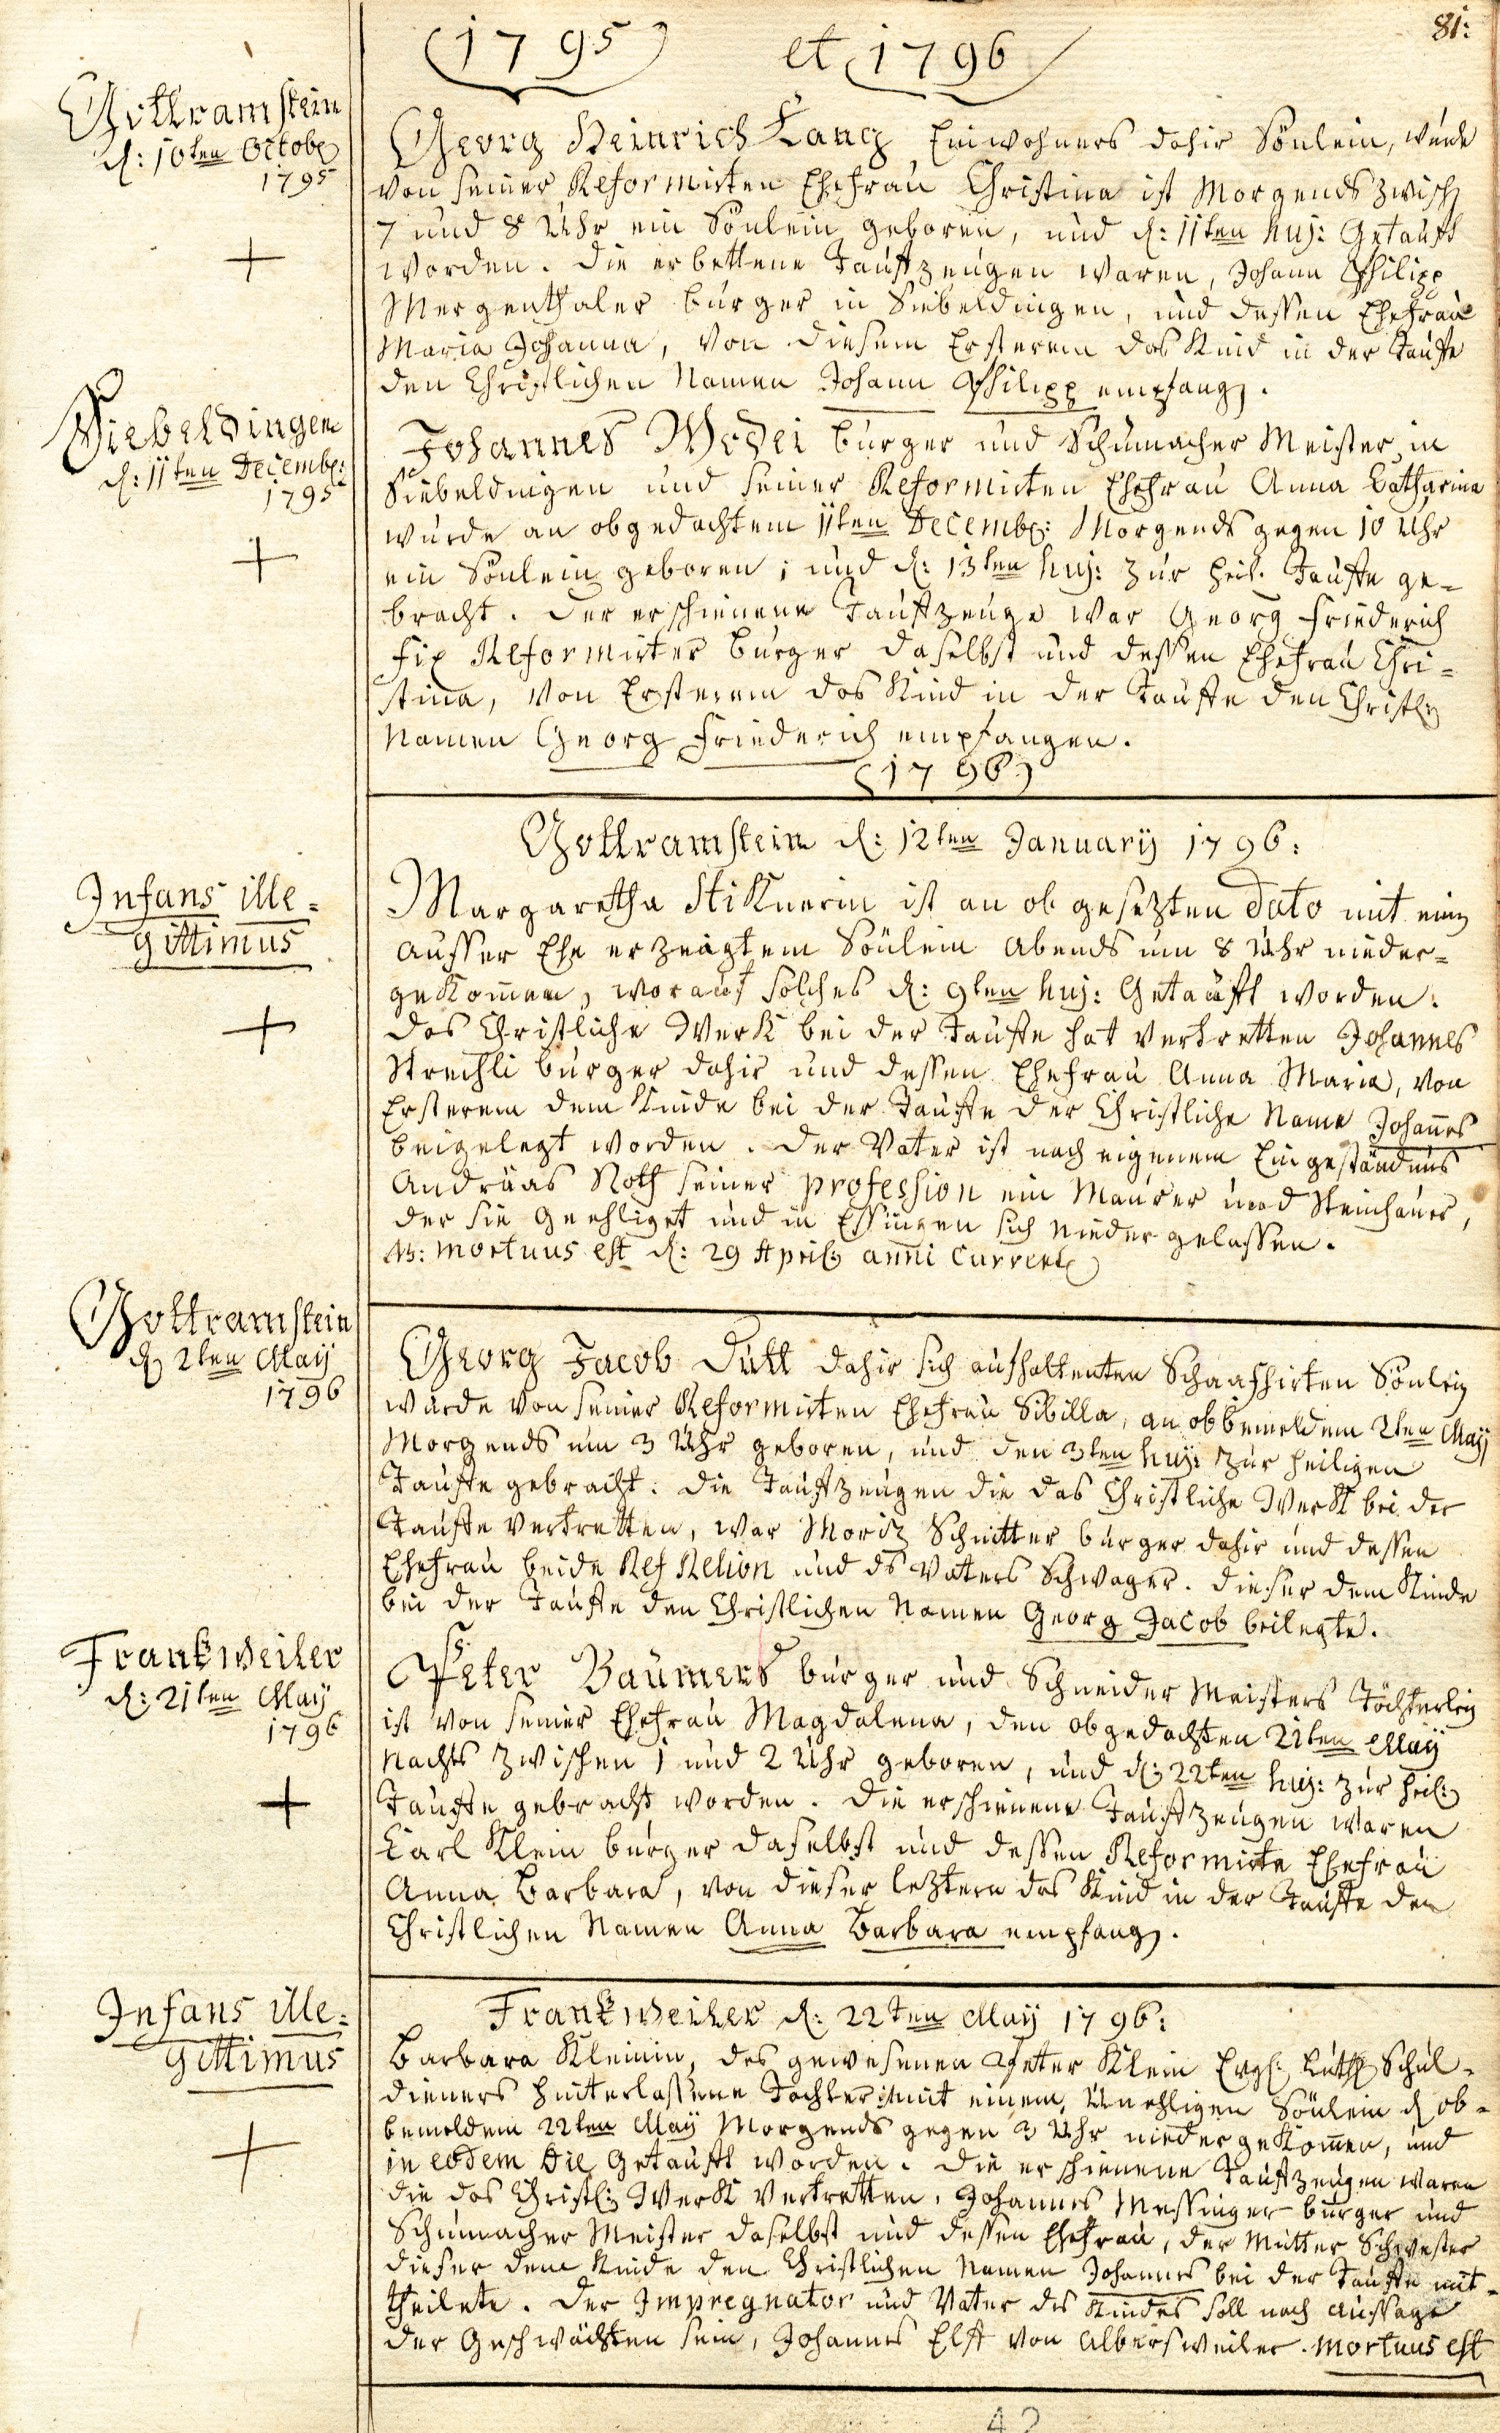 81:
(1795) et (1796)
Gottramstein
d: 10ten Octobr
1795
+
Georg Heinrich Lang Einwohners dahir Sönlein, wurde
von seiner Reformirten Ehefrau Christina ist Morgends zwisch
7 und 8 Uhr ein Sönlein geboren, und d: 11ten huj: Getauft
worden. Die erbettene Taufzeugen waren, Johann Philipp
Mergenthaler burger in Siebeldingen, und dessen Ehefrau
Maria Johanna, von diesem Ersterem das Kind in der Tauffe
den Christlichen Namen Johann Philipp empfang.
Siebeldingen
d: 11ten Decembr:
1795
+
Johannes Medei burger und Schumacher Meister in
Siebeldingen und seiner Reformirten Ehefrau Anna Catharina
wurde an obgedachtem 11ten Decembr: Morgends gegen 10 Uhr
ein Sönlein geboren; und d: 13ten huj: zur heil. Tauffe ge-
bracht. Der erschienene Taufzeuge war Georg Friederich
Fix Reformirter burger daselbst und dessen Ehefrau Chri-
stina, von Ersterem das Kind in der Tauffe den Christl:
Namen Georg Friederich empfangen.
(1796)
Gottramstein d: 12ten Januarij 1796:
Infans ille-
gittimus
+
Margaretha Stiknerin ist an ob gesetzten Dato mit eim
ausser Ehe erzeugtem Sönlein Abends um 8 Uhr nieder-
gekommen, worauf solches d: 9ten huj: Getauft worden.
Das Christliche Werk bei der Tauffe hat vertretten Johannes
Strechli burger dahir und dessen Ehefrau Anna Maria, von
Ersterem dem Kinde bei der Tauffe der Christliche Name Johannes
beigelegt worden. Der Vater ist nach eigenem Eingeständnus
Andräas Roth seiner profession ein Maurer und Steinhauer,
der sie Geehliget und in Essingen sich nieder gelassen.
NB: mortuus est d: 29 April anni Current
Gottramstein
d 2ten May
1796
Georg Jacob Dutt dahir sich aufhaltenten Schaafhirten Sönlein
wurde von seiner Reformirten Ehefrau Sibilla, an obbemeldem 2ten May
Morgends um 3 Uhr geboren, und den 3ten huj: zur heiligen
Tauffe gebracht. Die Taufzeugen die das Christliche Werk bei der
Tauffe vertretten, war Moriz Schnitter burger dahir und dessen
Ehefrau beide Ref Relion und ds Vaters Schwager. Dieser dem Kinde
bei der Tauffe den Christlichen Namen Georg Jacob beilegte.
Frankweiler
d: 21ten May
1796
+
Peter Baumers burger und Schneider Meisters Töchterlein
ist von seiner Ehefrau Magdalena, den obgedachten 21ten May
Nachts zwischen 1 und 2 Uhr geboren, und d: 22ten huj: zur heil:
Tauffe gebracht worden. Die erschienene Taufzeugen waren
Carl Klein burger daselbst und dessen Reformirte Ehefrau
Anna Barbara, von dieser letztern das Kind in der Tauffe den
Christlichen Namen Anna Barbara empfang.
Frankweiler d: 22ten May 1796:
Infans ille-
gittimus
+
Barbara Kleinin, des gewesenen Petter Klein Evgl: Luth Schul-
dieners hinterlassene Tochter mit einem Unehligen Sönlein d ob-
bemeldem 22ten May Morgends gegen 3 Uhr niedergekommen, und
in eodem Die Getauft worden. Die erschienene Taufzeugen waren
die das Christl: Werk vertretten, Johannes Messinger burger und
Schumacher Meister daselbst und dessen Ehefrau, der Mutter Schwester
dieser dem Kinde den Christlichen Namen Johannes bei der Tauffe mit-
theilete. Der Impregnator und Vater des Kindes soll nach Aussage
der Geschwächten sein, Johannes Elft von Albersweiler. mortuus est
42